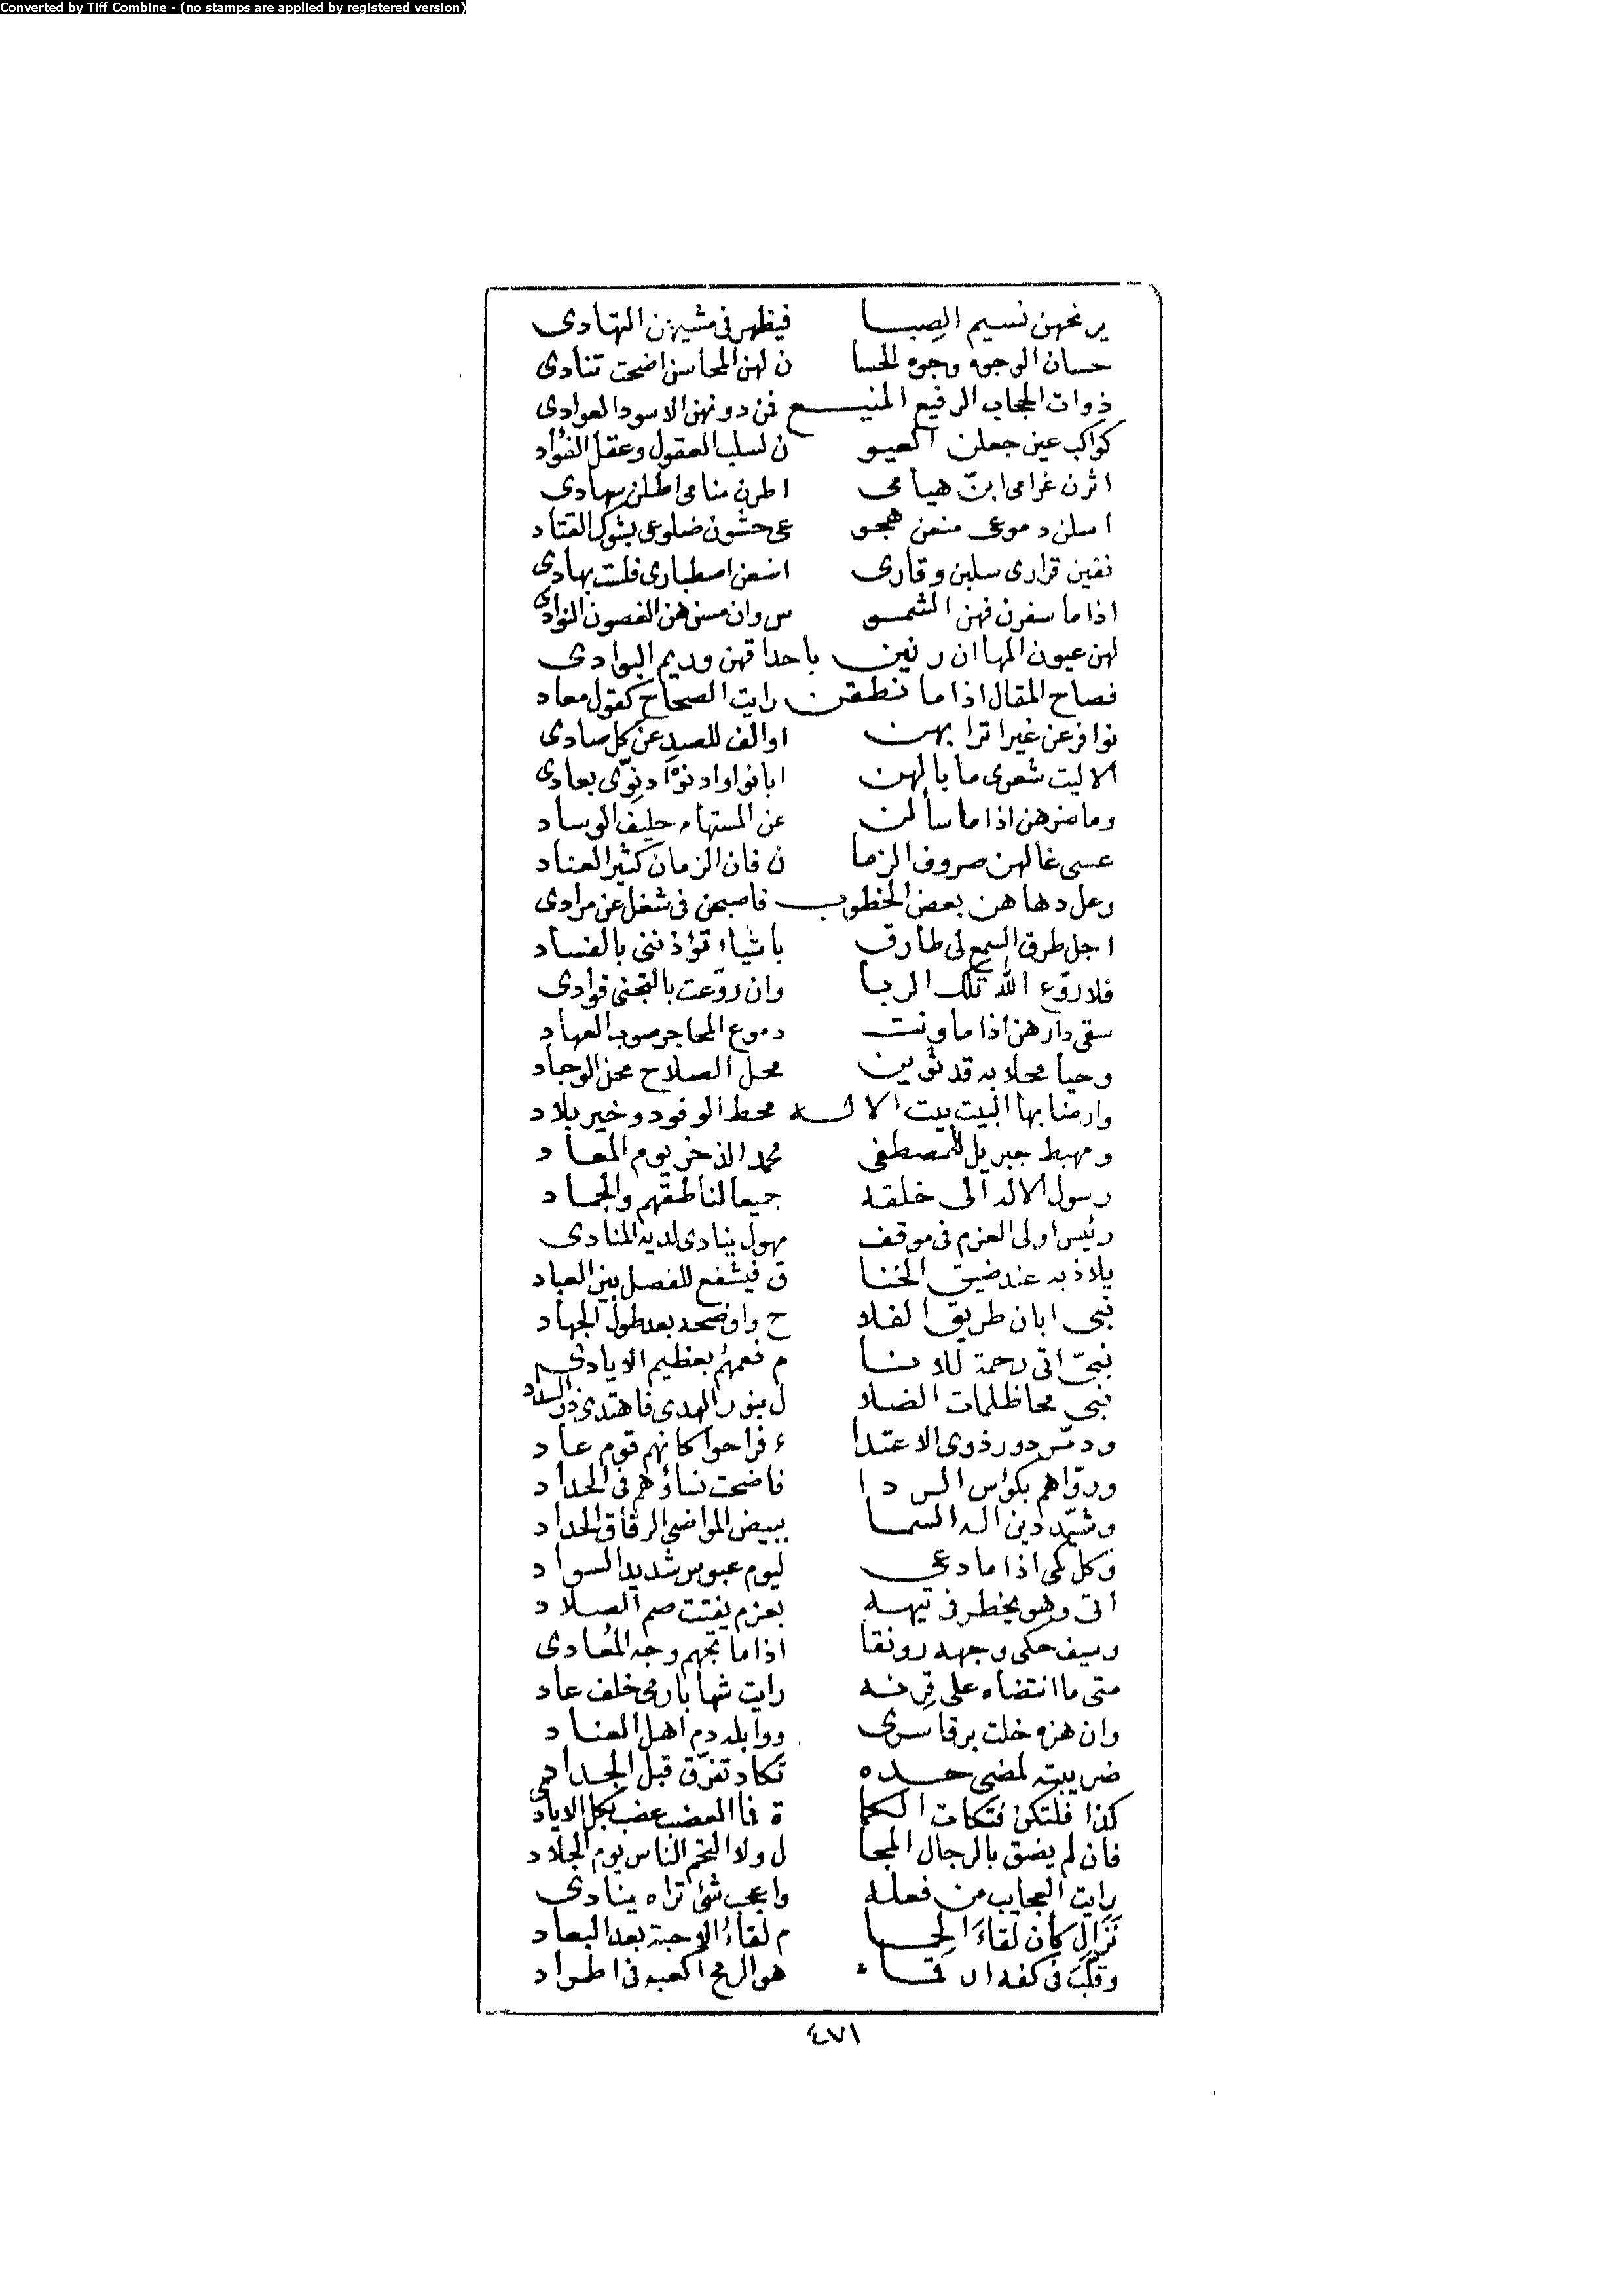 Converted by Tiff Combine - (no stamps are applied by registered version)
يرنحهن نسيم الصبا فيظهر فى مشيهن التهادى
حسان الوجوه وجوه الحسا ن لهن المحاسن اضحت تنادى
ذوات الحجاب الرفيع المنيع فمن دونهن الاسود العوادى
كواكب عين جعلن العيو ن لسلب العقول وعقل الفؤاد
اثرن غرامى ابنّ هيامى اطرن منامى اطلن سهادى
اسلن دموعى منعن هجو عى حشون ضلوعى بشوك القتاد
نفين قرارى سلبن وقارى اضعن اصطبارى فلست بهادى
اذا ما سفرن فهن الشمو س وان مسن هن الغصون النوادى
لهن عيون المها ان رنين باحداقهن وريم البوادى
فصاح المقال اذا ما نطقن رايت الصحاح كقول معاد
نوافر عن غير اترابهن اوالف للصيد عن كل صادى
الا ليت شعرى ما بالهن ابانوا وادنوه ادنوّى بعادى
وما ضرهن اذا ما سألن عن المستهام حليف الوساد
عسى غالهن صروف الزما ن فان الزمان كثير العناد
وعل دهاهن بعض الخطوب فاصبحن فى شغل عن مرادى
اجل طرق السمع لى طارق باشياء تؤذننى بالفساد
فلا روّع الله تلك الربا وان روّعت بالتجنى فوادى
سقى دارهن اذا ما ونت دموع المحاجر صوب العهاد
وحيا محلا به قد ثوين محل الصلاح محل الوجاد
وارضا بها البيت بيت الاله محط الوفود وخير بلاد
ومهبط جبريل للمصطفى محمد الذخر يوم المعاد
رسول الاله الى خلقه جميعا لناطقهم والجماد
رئيس اولى العزم فى موقف مهول ينادى لديه المنادى
يلاذ به عند ضيق الخنا ق فيشفع للفصل بين العباد
نبى ابان طريق الفلا ح واوضحه بعد طول الجهاد
نبىّ اتى رحمة للانا م فعمهمُ بعظيم الايادى
نبى محا ظلمات الضلا ل بنور الهدى فاهتدى ذو السداد
ودمّر دور ذوى الاعتدا ء فراحوا كانهم قوم عاد
وروّاهم بكؤس الردا فاضحت نساؤهم فى الحداد
وشيّد دين اله السما ببيض المواضى الرقاق الحداد
وكل كمى اذا ما دعى ليوم عبوس شديد السواد
اتى وهو يخطر فى تيهه بعزم يفتت صم الصلاد
وسيف حكى وجهه رونقا اذا ما تجهم وجه المُعادى
متى ما انتضاه على قِرنه رايت شهابا رمى خلف عاد
وان هزه خلت برقا سرى ووابله دم اهل العناد
ضريبته لمضى حده تكاد تفرّق قبل الجداد
كذا فلتكن فتكات الكما ة فما العضب عضب بكل الايادى
فان لم يضق بالرجال المجا ل ولا التحم الناس يوم الجلاد
رايت العجايب من فعله واعجب شئ تراه ينادى
نَزَالِ كأن لقاءَ الحِما م لقاءُ الاحبة بعد البعاد
وقلّب فى كفه ارقما ء هو الرمح اكعبه فى اطراد
٤٧١